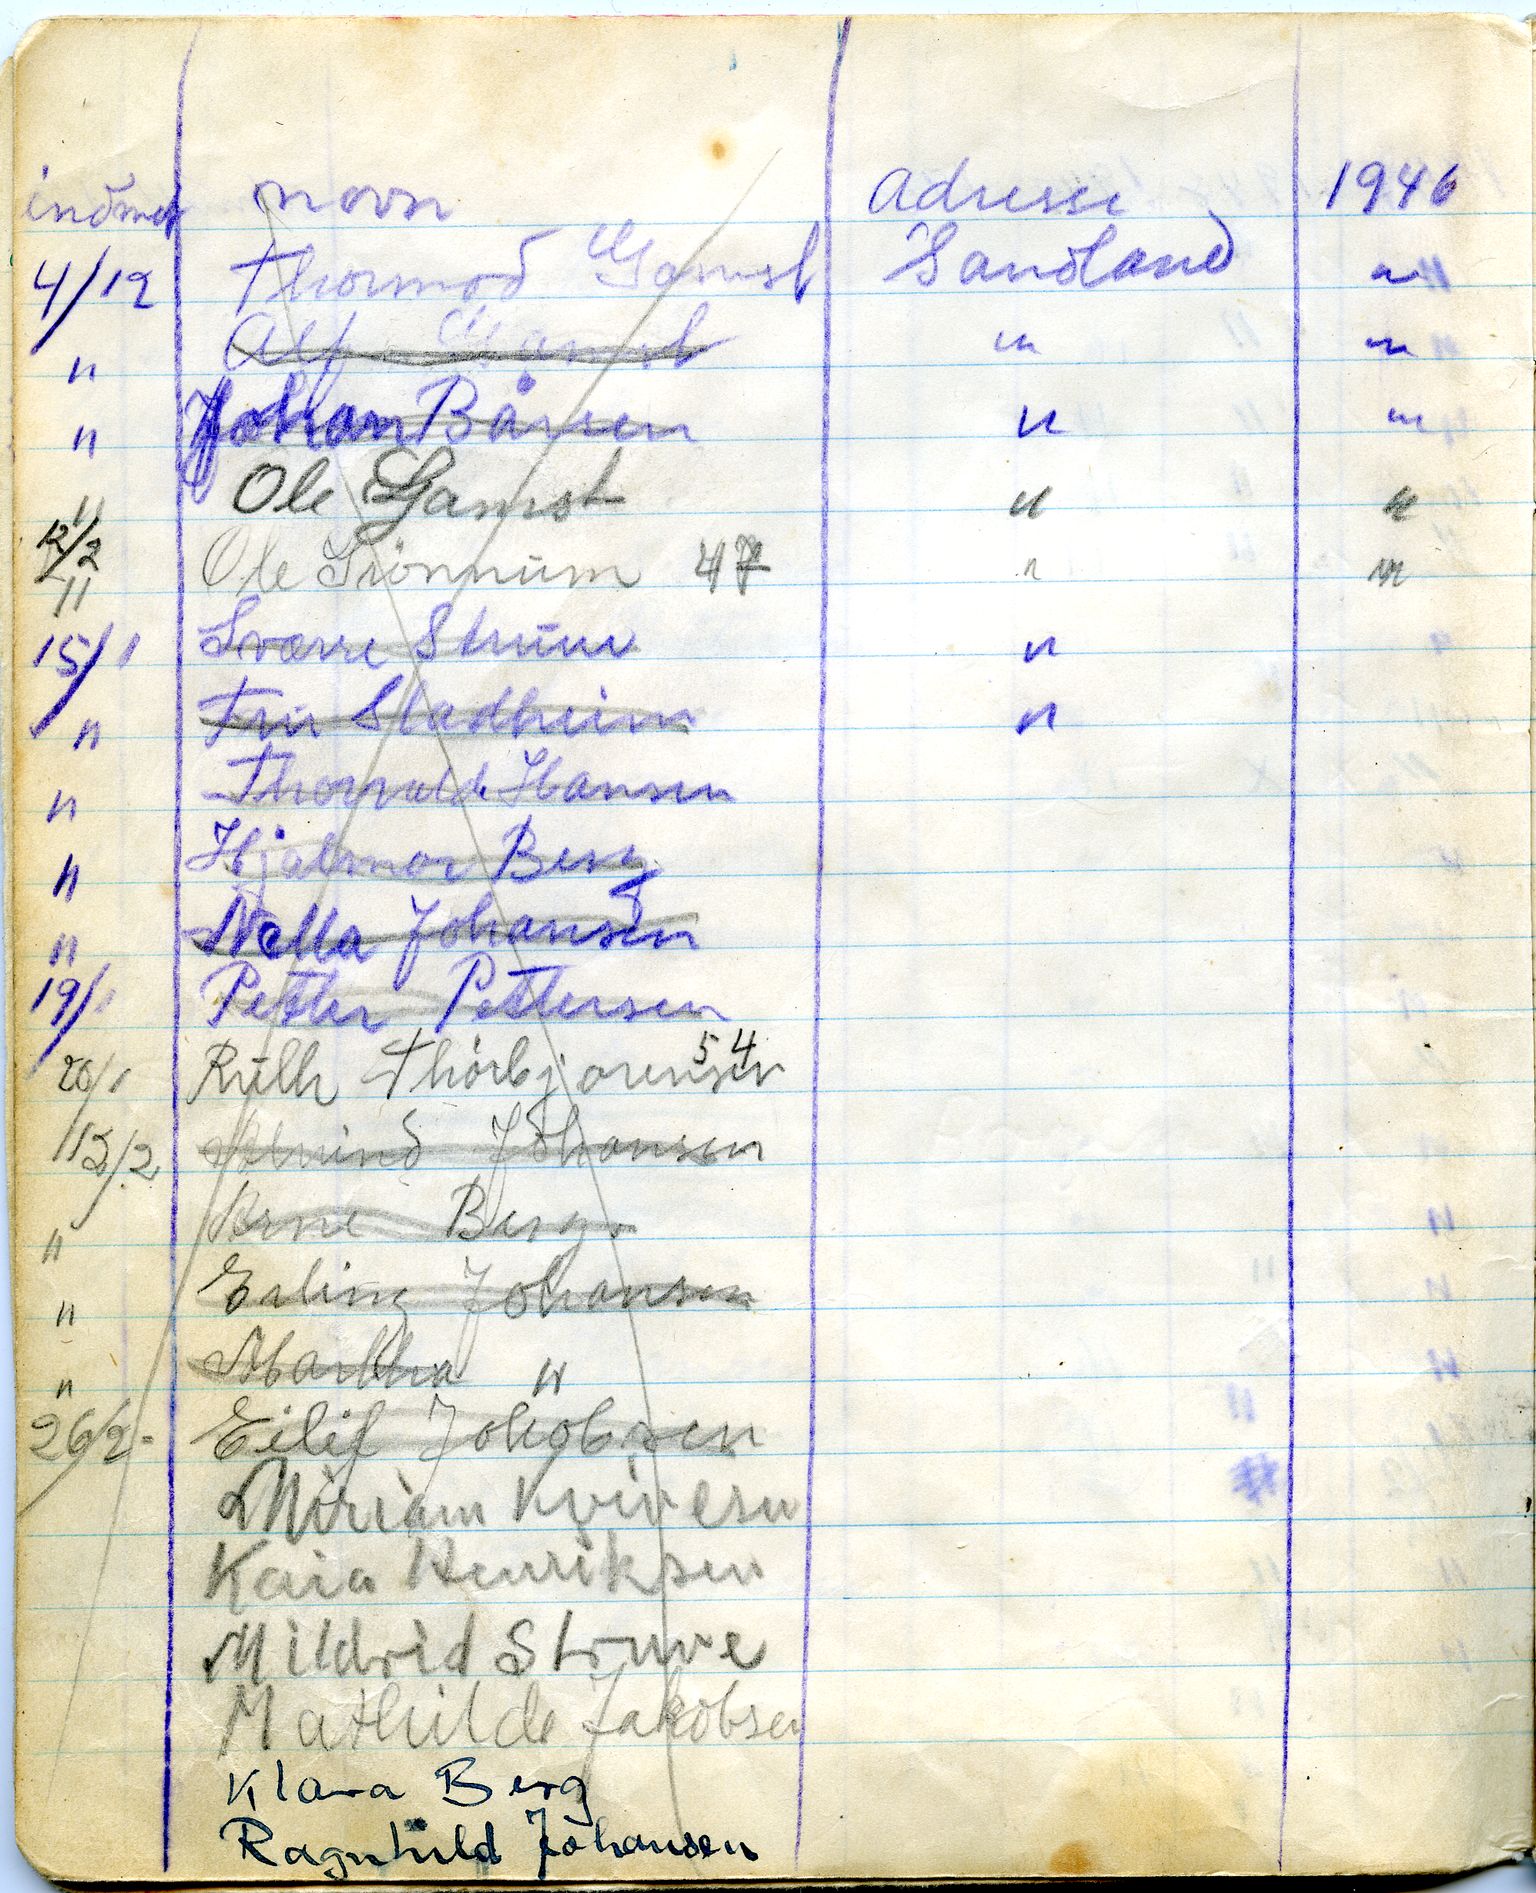 inðmel navn adresse 1946
4/12 Thormod Gamst Sandland "
" Alf Gamst " "
" Johan Bårsen " "
" Ole Gamst " "
12/2 " Ole Grønnum 47 " "
15/1 Sverre Struve "
" Fru Stadheim "
" Thorvald Hansen
" Hjalmar Berg
" Nella Johansen
19/1 Petter Pettersen
20/1 Ruth Thorbjørensen 54
12/2 Johansen
" Arne Berg
" Erling Johansen
" Martha "
26/2- Eilif Jakobsen
Miriam Kvivesen
Kaia Henriksen
Mildrid Struve
Mathilde Jakobsen
Klara Berg
Ragnhild Johansen